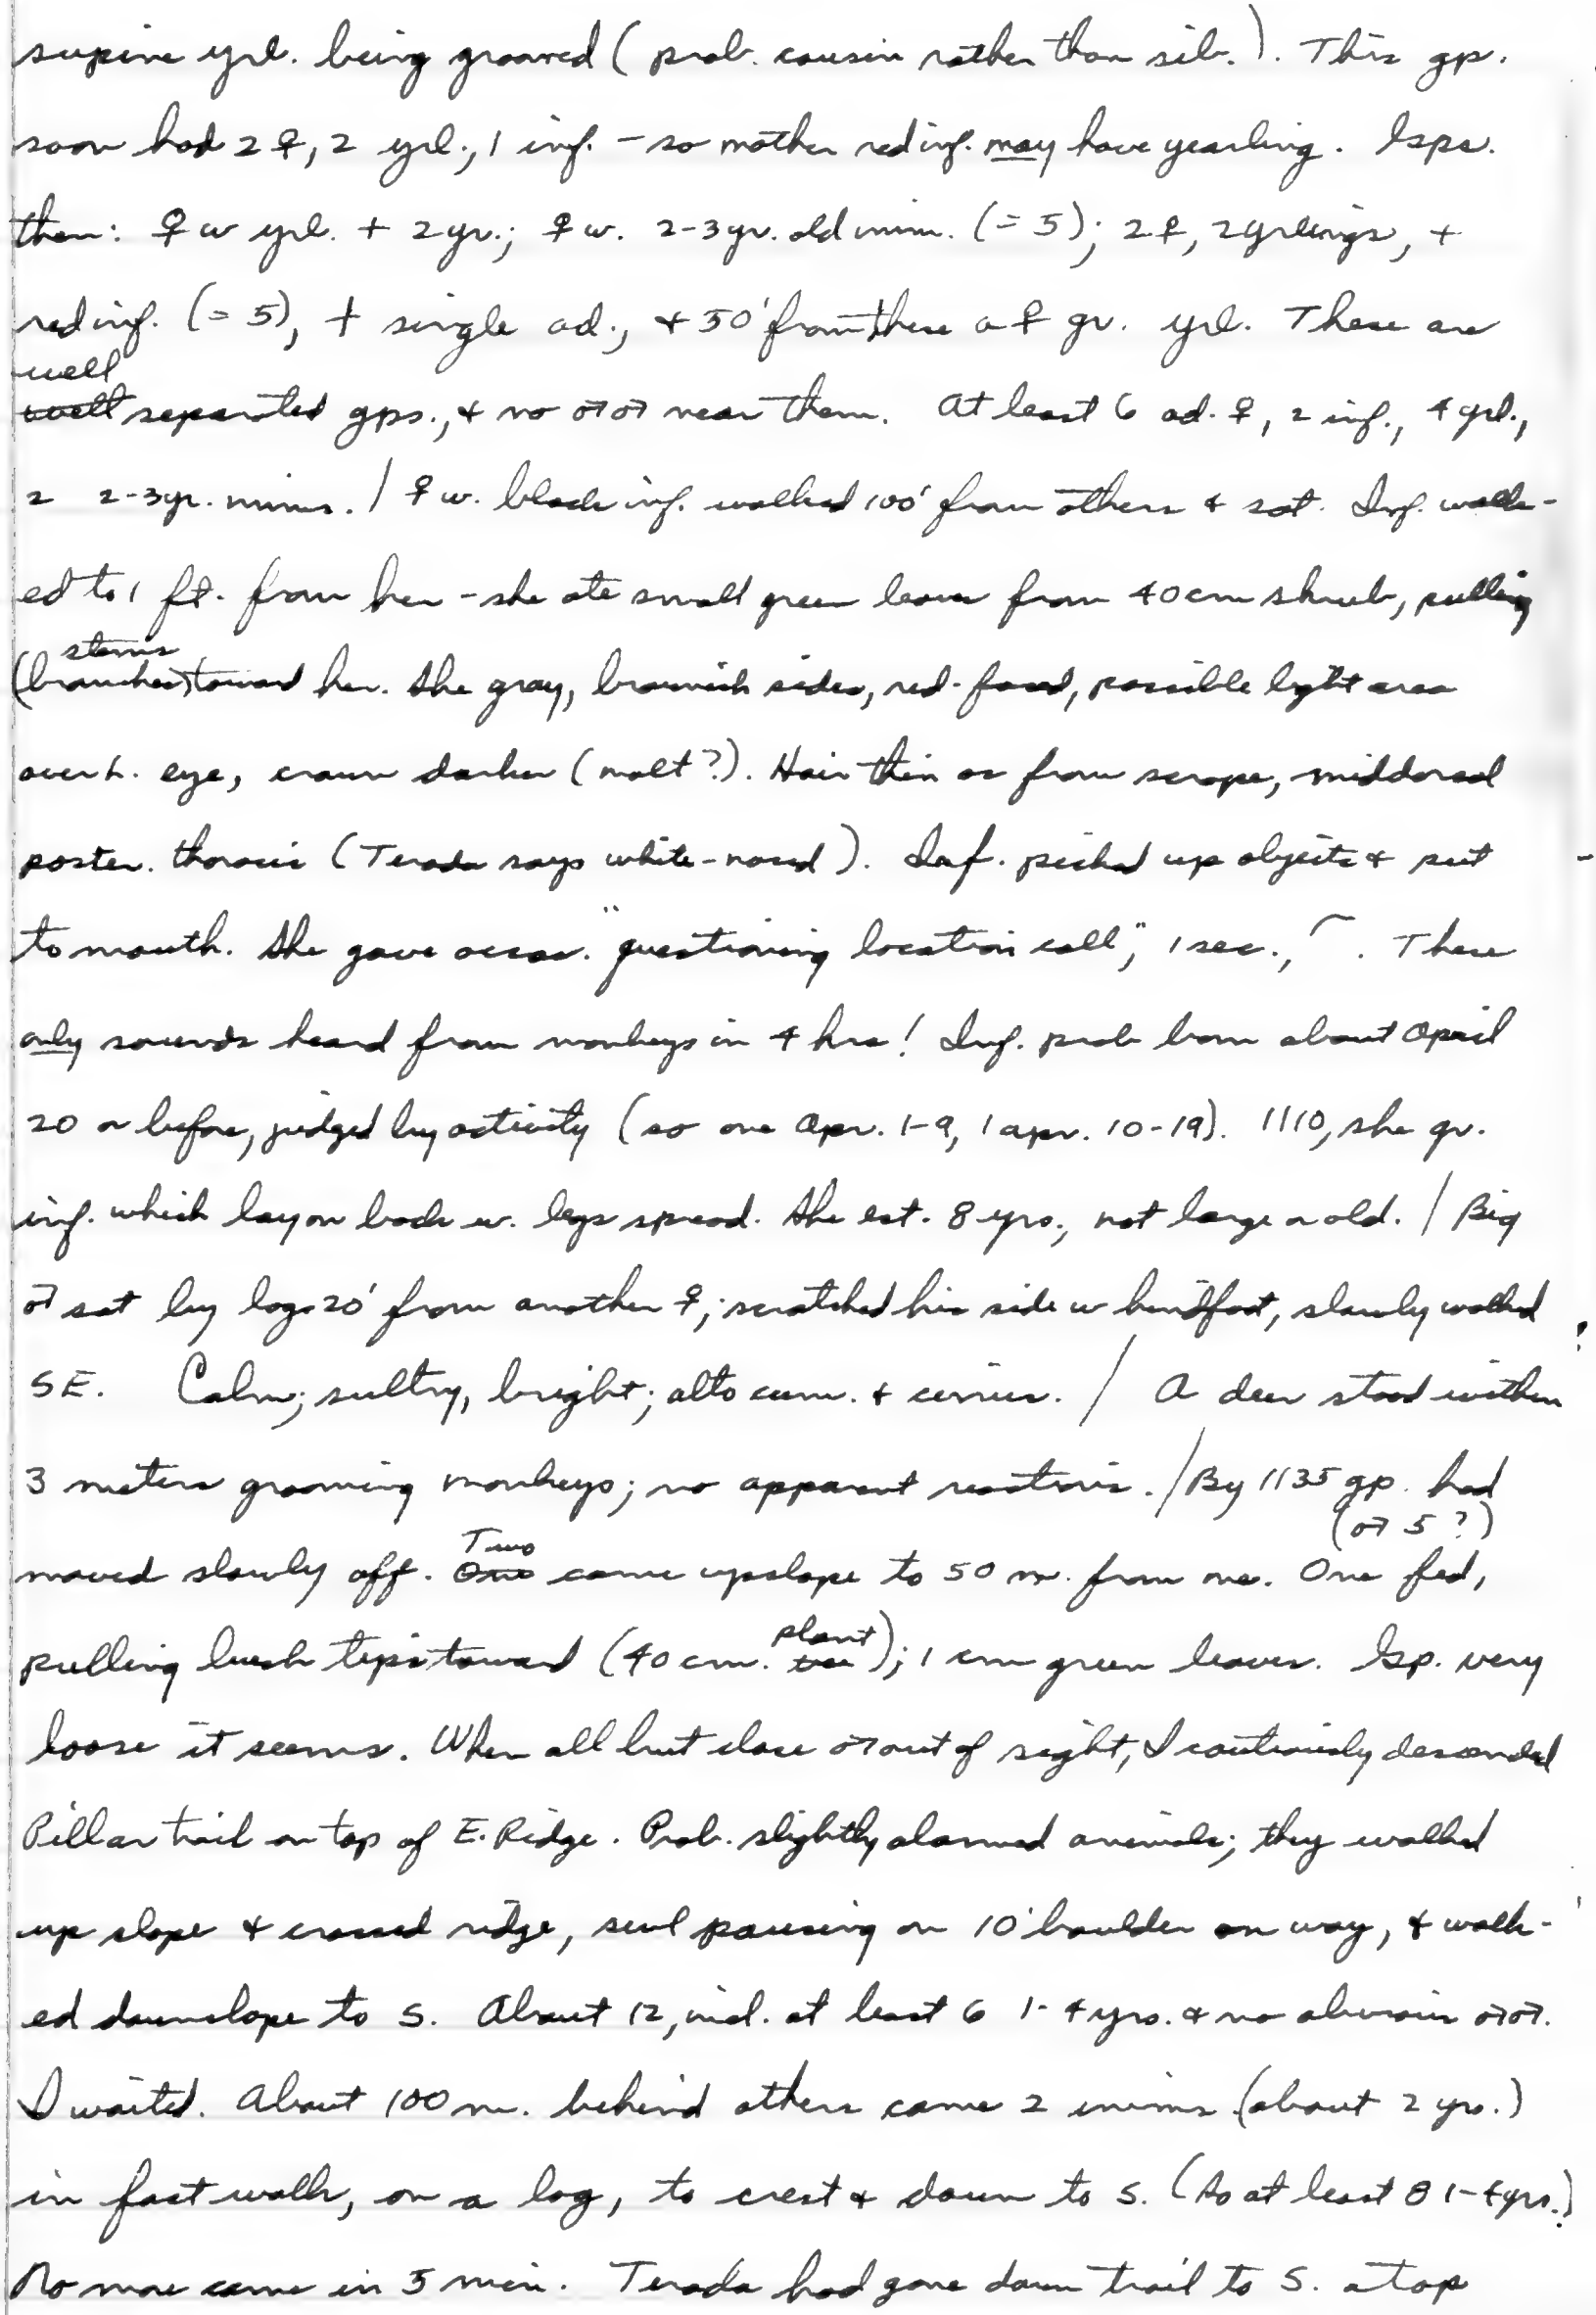 supine yrl. being groomed (prob. cousin rather than sib.). This gp.
soon had 2 ♀, 2 yrl., 1 inf. - so mother red inf. may have yearling. Gps.
then: ♀ w yrl. + 2 yr.; ♀ w. 2-3 yr. old imm. (= 5); 2 ♀, 2 yrlings, +
red inf. (= 5), + single ad., + 50' from these a ♀ gr. yrl. These are
well
well separated gps., & no ♂♂ near them. At least 6 ad. ♀, 2 inf., 4 yrl.,
2 2-3 yr. imms. / ♀ w. black inf. walked 100' from others & sat. Inf. walk-
ed to 1 ft. from her - she ate small green leaves from 40 cm shrub, pulling
stems
(branches) toward her. She gray, brownish sides, red-faced, possible light area
over L. eye, crown darker (molt?). Hair thin as from scrape, middorsal
poster. thoracic (Terada says white-nosed). Inf. picked up objects & put
to mouth. She gave occas. "questioning location call", 1 sec., ⌒. These
only sounds heard from monkeys in 4 hrs! Inf. prob born about April
20 or before, judged by activity (so one Apr. 1-9, 1 Apr. 10-19). 1110, she gr.
inf. which lay on back w. legs spread. She est. 8 yrs., not large or old. / Big
♂ sat by logs 20' from another ♀; scratched his side w hindfoot, slowly walked
SE. Calm; sultry, bright; alto cum. & cirrus. / A deer stood within
3 meters grooming monkeys; no apparent reactions. / By 1135 gp. had
Two (♂ 5?)
moved slowly off. One came upslope to 50 m. from me. One fed,
plant
pulling bush tips toward (40 cm. tree); 1 cm green leaves. Gp. very
loose it seems. When all but close ♂ out of sight, I cautiously descended
Pillar trail on top of E. Ridge. Prob. slightly alarmed animals; they walked
up slope & crossed ridge, sevl pausing on 10' boulder on way, & walk-
ed downslope to S. About 12, incl. at least 6 1-4 yrs. & no obvious ♂♂.
I waited. About 100 m. behind others came 2 imms (about 2 yrs.)
in fast walk, on a log, to crest & down to S. (So at least 8 1-4 yrs.?)
No more came in 5 min. Terada had gone down trail to S. atop